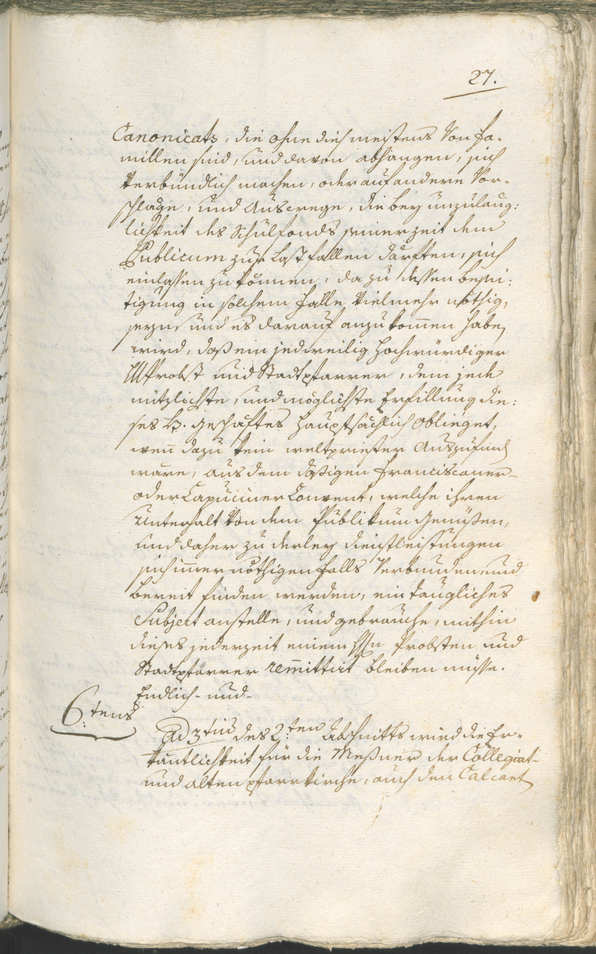 27.
Canonicats, die ohne dieß meistens von Fa-
millen sind, und davon abhangen, sich
verbündlich machen, oder auf andere Vor-
schläge, und Auswege, die bey unzuläng:
lichkeit des Schulfonds seiner zeit dem
Publicum zur Last fallen därften, sich
einlassen zu können, da zu dessen
tigung in solchem Falle vielmehr nöthig,
seyn, und es darauf anzukommen haben
wird, daß ein jedweilig hochwürdiger
Probst und Stadtpfarrer, dem
nützlichste, und möglichste Erfüllung die:
ses Geschäftes hauptsächlich obliegt,
wenn dazu kein weltpriester
wäre, aus dem dasigen Franciscaner-
oder Capuciner Convent, welche ihren
Unterhalt von dem Publikum genüßen,
und daher zu derley Dienstleistungen
sich immer nöthigen Falls verbunden, und
bereit finden werden, ein taugliches
Subject anstelle, und gebrauche, mithin
dieses jederzeit einem Probsten und
Stadtpfarrer remittirt bleiben müsse.
Endlich- und-
6.tens
Ad 3tium des 2.ten Abschnitts wird die Er-
käntlichkeit für die Meßner der Collegiat-
und alten pfarrkirche, auch den Calcant